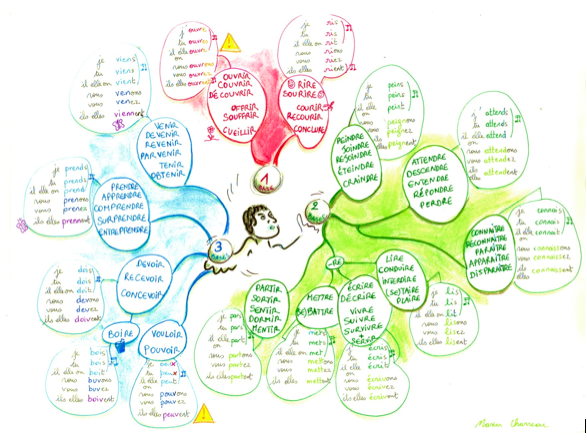 je viens
tu viens
il elle on vient
nous venons
vous venez
ils elles viennent
VENIR
DEVENIR
REVENIR
PARVENIR
TENIR
OBTENIR
j' ouvre
tu ouvres
il elle ouvre
on
nous ouvrons
vous ouvrez
ils elles ouvrent
OUVRIR
COUVRIR
DÉCOUVRIR
OFFRIR
SOUFFRIR
je ris
tu ris
il elle rit
on
nous rions
vous riez
ils elles rient
RIRE
SOURIRE
COURIR
RECOURIR
CONCLURE
1
BASE
je peins
tu peins
il elle peint
on
nous peignons
vous peignez
ils elles peignent
PEINDRE
JOINDRE
ÉTEINDRE
CRAINDRE
j' attends
tu attends
il elle attend
on
nous attendons
vous attendez
ils elles attendent
ATTENDRE
DESCENDRE
ENTENDRE
RÉPONDRE
PERDRE
2
BASES
je connais
tu connais
il elle connaît
on
nous connaissons
vous connaissez
ils elles connaissent
CONNAÎTRE
RECONNAÎTRE
PARAÎTRE
APPARAÎTRE
DISPARAÎTRE
-RE
LIRE
CONDUIRE
INTERDIRE
SE TAIRE
PLAIRE
je lis
tu lis
il elle lit
on
nous lisons
vous lisez
ils elles lisent
ÉCRIRE
DÉCRIRE
VIVRE
SUIVRE
SURVIVRE
+
SERVIR
j' écris
tu écris
il elle écrit
on
nous écrivons
vous écrivez
ils elles écrivent
METTRE
(SE)BATTRE
je mets
tu mets
il elle met
on
nous mettons
vous mettez
ils elles mettent
PARTIR
SORTIR
SENTIR
DORMIR
MENTIR
je pars
tu pars
il elle part
on
nous partons
vous partez
ils elles partent
3
BASES
je prends
tu prends
il elle on prend
nous prenons
vous prenez
ils elles prennent
PRENDRE
APPRENDRE
COMPRENDRE
SURPRENDRE
ENTREPRENDRE
je dois
tu dois
il elle on doit
nous devons
vous devez
ils elles doivent
DEVOIR
RECEVOIR
CONCEVOIR
BOIRE
je bois
tu bois
il elle on boit
nous buvons
vous buvez
ils elles boivent
VOULOIR
POUVOIR
je peux
tu peux
il elle on peut
nous pouvons
vous pouvez
ils elles peuvent